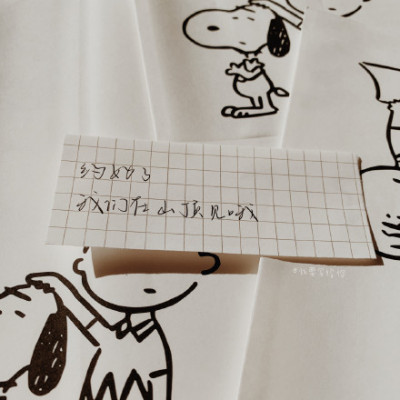 约好了
我们在山顶见哦